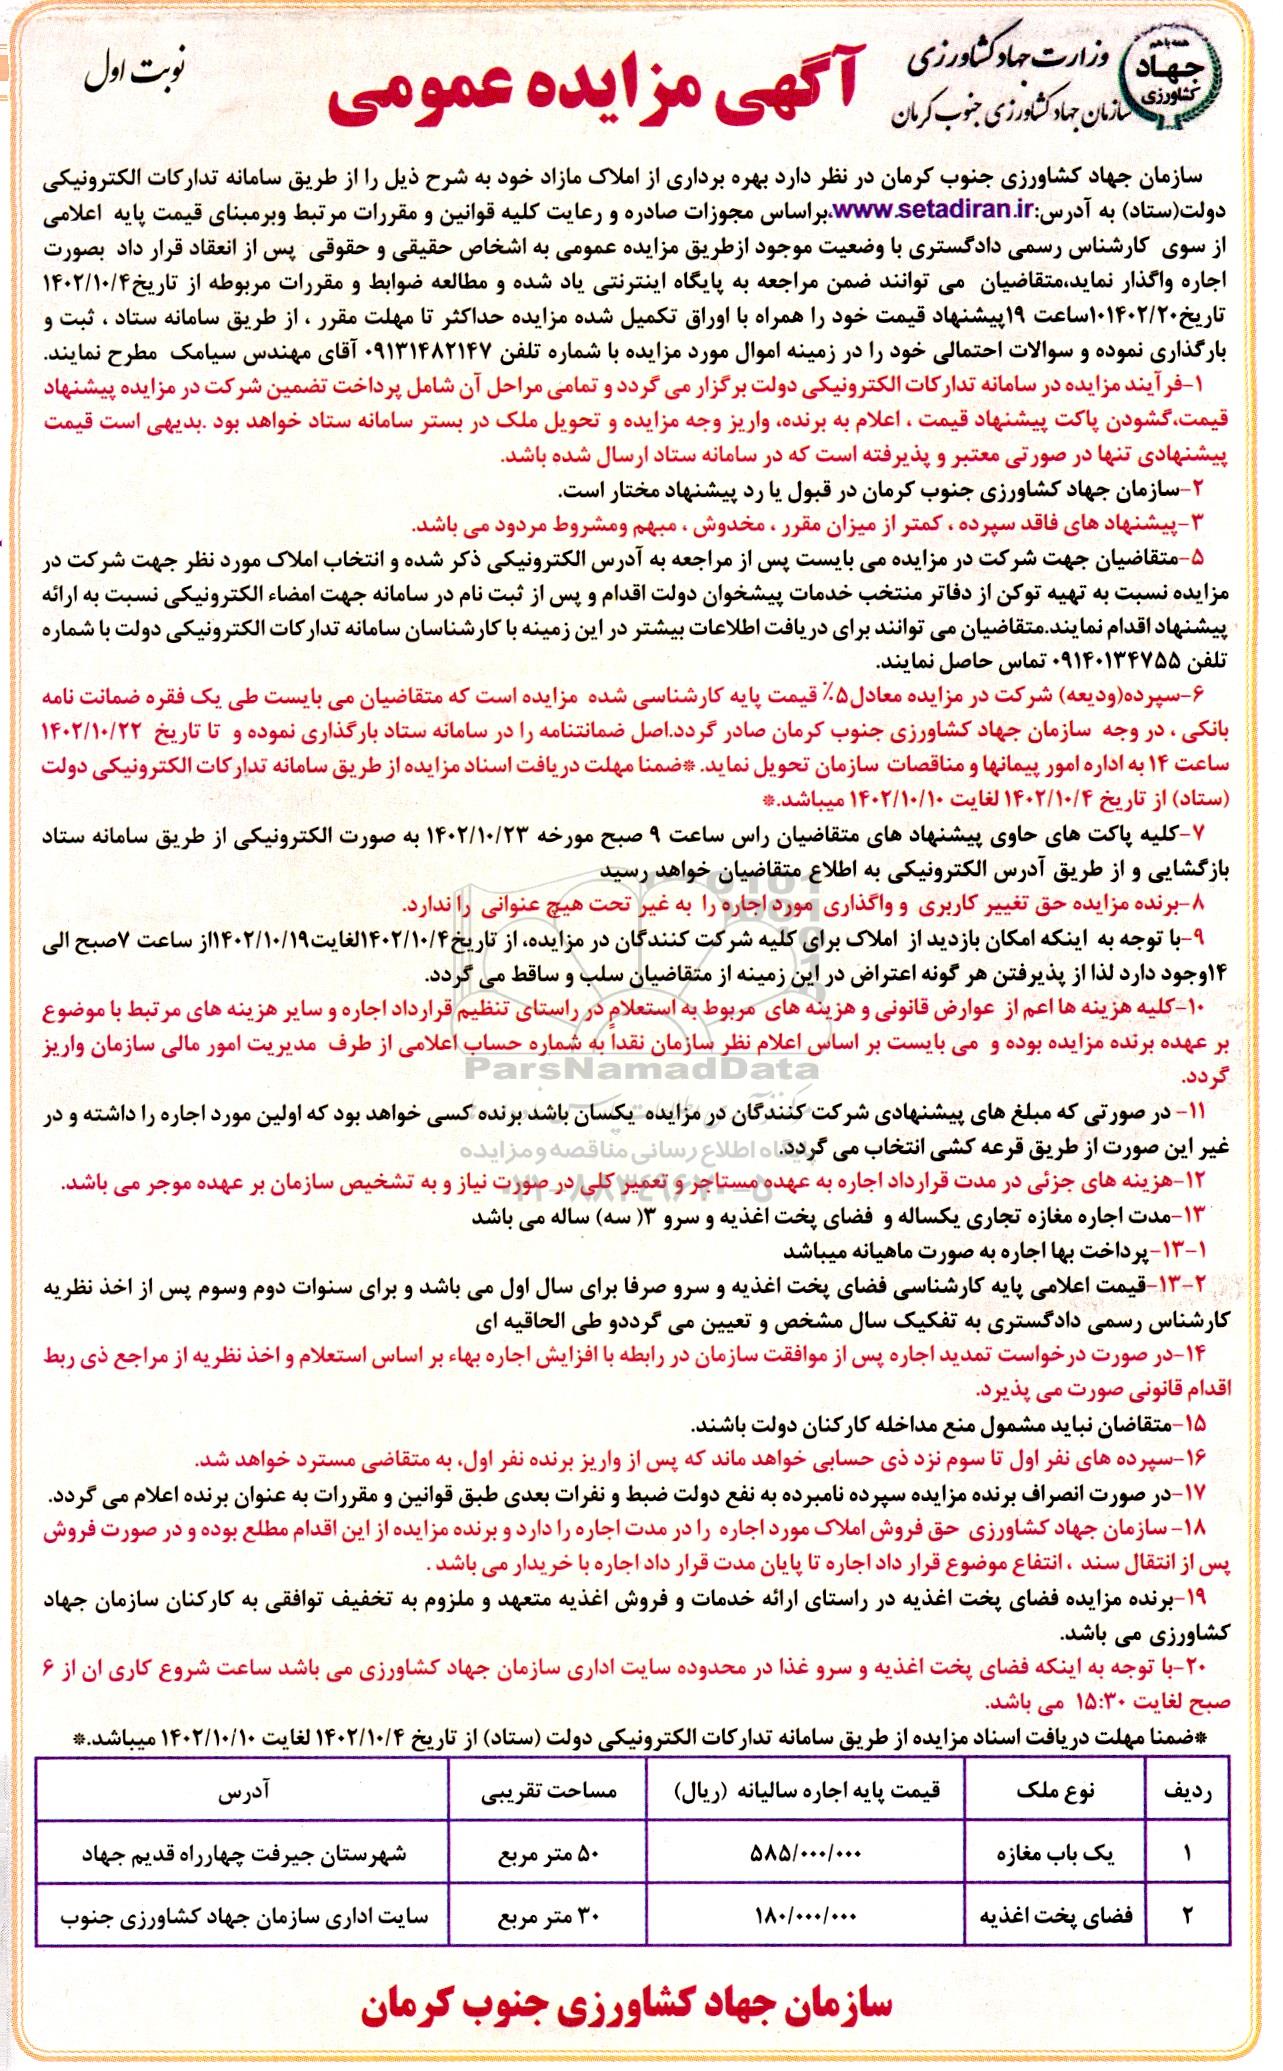 همه با هم
جهاد
کشاورزی
وزارت جهاد کشاورزی
سازمان جهاد کشاورزی جنوب کرمان
آگهی مزایده عمومی
نوبت اول
سازمان جهاد کشاورزی جنوب کرمان در نظر دارد بهره برداری از املاک مازاد خود به شرح ذیل را از طریق سامانه تدارکات الکترونیکی
دولت(ستاد) به آدرس:www.setadiran.ir،براساس مجوزات صادره و رعایت کلیه قوانین و مقررات مرتبط وبرمبنای قیمت پایه اعلامی
از سوی کارشناس رسمی دادگستری با وضعیت موجود ازطریق مزایده عمومی به اشخاص حقیقی و حقوقی پس از انعقاد قرار داد بصورت
اجاره واگذار نماید،متقاضیان می توانند ضمن مراجعه به پایگاه اینترنتی یاد شده و مطالعه ضوابط و مقررات مربوطه از تاریخ۱۴۰۲/۱۰/۴
تاریخ۱۰۱۴۰۲/۲۰ساعت ۱۹پیشنهاد قیمت خود را همراه با اوراق تکمیل شده مزایده حداکثر تا مهلت مقرر ، از طریق سامانه ستاد ، ثبت و
بارگذاری نموده و سوالات احتمالی خود را در زمینه اموال مورد مزایده با شماره تلفن ۰۹۱۳۱۴۸۲۱۴۷ آقای مهندس سیامک مطرح نمایند.
۱-فرآیند مزایده در سامانه تدارکات الکترونیکی دولت برگزار می گردد و تمامی مراحل آن شامل پرداخت تضمین شرکت در مزایده پیشنهاد
قیمت،گشودن پاکت پیشنهاد قیمت ، اعلام به برنده، واریز وجه مزایده و تحویل ملک در بستر سامانه ستاد خواهد بود .بدیهی است قیمت
پیشنهادی تنها در صورتی معتبر و پذیرفته است که در سامانه ستاد ارسال شده باشد.
۲-سازمان جهاد کشاورزی جنوب کرمان در قبول یا رد پیشنهاد مختار است.
۳-پیشنهاد های فاقد سپرده ، کمتر از میزان مقرر ، مخدوش ، مبهم ومشروط مردود می باشد.
۵-متقاضیان جهت شرکت در مزایده می بایست پس از مراجعه به آدرس الکترونیکی ذکر شده و انتخاب املاک مورد نظر جهت شرکت در
مزایده نسبت به تهیه توکن از دفاتر منتخب خدمات پیشخوان دولت اقدام و پس از ثبت نام در سامانه جهت امضاء الکترونیکی نسبت به ارائه
پیشنهاد اقدام نمایند.متقاضیان می توانند برای دریافت اطلاعات بیشتر در این زمینه با کارشناسان سامانه تدارکات الکترونیکی دولت با شماره
تلفن ۰۹۱۴۰۱۳۴۷۵۵ تماس حاصل نمایند.
۶-سپرده(ودیعه) شرکت در مزایده معادل۵٪ قیمت پایه کارشناسی شده مزایده است که متقاضیان می بایست طی یک فقره ضمانت نامه
بانکی ، در وجه سازمان جهاد کشاورزی جنوب کرمان صادر گردد.اصل ضمانتنامه را در سامانه ستاد بارگذاری نموده و تا تاریخ ۱۴۰۲/۱۰/۲۲
ساعت ۱۴ به اداره امور پیمانها و مناقصات سازمان تحویل نماید. *ضمنا مهلت دریافت اسناد مزایده از طریق سامانه تدارکات الکترونیکی دولت
(ستاد) از تاریخ ۱۴۰۲/۱۰/۴ لغایت ۱۴۰۲/۱۰/۱۰ میباشد.*
۷-کلیه پاکت های حاوی پیشنهاد های متقاضیان راس ساعت ۹ صبح مورخه ۱۴۰۲/۱۰/۲۳ به صورت الکترونیکی از طریق سامانه ستاد
بازگشایی و از طریق آدرس الکترونیکی به اطلاع متقاضیان خواهد رسید
۸-برنده مزایده حق تغییر کاربری و واگذاری مورد اجاره را به غیر تحت هیچ عنوانی را ندارد.
۹-با توجه به اینکه امکان بازدید از املاک برای کلیه شرکت کنندگان در مزایده، از تاریخ۱۴۰۲/۱۰/۴لغایت۱۴۰۲/۱۰/۱۹از ساعت ۷صبح الی
۱۴وجود دارد لذا از پذیرفتن هر گونه اعتراض در این زمینه از متقاضیان سلب و ساقط می گردد.
۱۰-کلیه هزینه ها اعم از عوارض قانونی و هزینه های مربوط به استعلام در راستای تنظیم قرارداد اجاره و سایر هزینه های مرتبط با موضوع
بر عهده برنده مزایده بوده و می بایست بر اساس اعلام نظر سازمان نقداً به شماره حساب اعلامی از طرف مدیریت امور مالی سازمان واریز
گردد.
ParsNamadData
۱۱- در صورتی که مبلغ های پیشنهادی شرکت کنندگان در مزایده یکسان باشد برنده کسی خواهد بود که اولین مورد اجاره را داشته و در
غیر این صورت از طریق قرعه کشی انتخاب می گردد.
پایگاه اطلاع رسانی مناقصه و مزایده
۱۲-هزینه های جزئی در مدت قرارداد اجاره به عهده مستاجر و تعمیر کلی در صورت نیاز و به تشخیص سازمان بر عهده موجر می باشد.
۱۳-مدت اجاره مغازه تجاری یکساله و فضای پخت اغذیه و سرو ۳( سه) ساله می باشد
۱۳-۱-پرداخت بها اجاره به صورت ماهیانه میباشد
۱۳-۲-قیمت اعلامی پایه کارشناسی فضای پخت اغذیه و سرو صرفا برای سال اول می باشد و برای سنوات دوم وسوم پس از اخذ نظریه
کارشناس رسمی دادگستری به تفکیک سال مشخص و تعیین می گرددو طی الحاقیه ای
۱۴-در صورت درخواست تمدید اجاره پس از موافقت سازمان در رابطه با افزایش اجاره بهاء بر اساس استعلام و اخذ نظریه از مراجع ذی ربط
اقدام قانونی صورت می پذیرد.
۱۵-متقاضان نباید مشمول منع مداخله کارکنان دولت باشند.
۱۶-سپرده های نفر اول تا سوم نزد ذی حسابی خواهد ماند که پس از واریز برنده نفر اول، به متقاضی مسترد خواهد شد.
۱۷-در صورت انصراف برنده مزایده سپرده نامبرده به نفع دولت ضبط و نفرات بعدی طبق قوانین و مقررات به عنوان برنده اعلام می گردد.
۱۸- سازمان جهاد کشاورزی حق فروش املاک مورد اجاره را در مدت اجاره را دارد و برنده مزایده از این اقدام مطلع بوده و در صورت فروش
پس از انتقال سند ، انتفاع موضوع قرار داد اجاره تا پایان مدت قرار داد اجاره با خریدار می باشد .
۱۹-برنده مزایده فضای پخت اغذیه در راستای ارائه خدمات و فروش اغذیه متعهد و ملزوم به تخفیف توافقی به کارکنان سازمان جهاد
کشاورزی می باشد.
۲۰-با توجه به اینکه فضای پخت اغذیه و سرو غذا در محدوده سایت اداری سازمان جهاد کشاورزی می باشد ساعت شروع کاری ان از ۶
صبح لغایت ۱۵:۳۰ می باشد.
*ضمنا مهلت دریافت اسناد مزایده از طریق سامانه تدارکات الکترونیکی دولت (ستاد) از تاریخ ۱۴۰۲/۱۰/۴ لغایت ۱۴۰۲/۱۰/۱۰ میباشد.*
ردیف نوع ملک قیمت پایه اجاره سالیانه (ریال) مساحت تقریبی آدرس
۱ یک باب مغازه ۵۸۵/۰۰۰/۰۰۰ ۵۰ متر مربع شهرستان جیرفت چهارراه قدیم جهاد
۲ فضای پخت اغذیه ۱۸۰/۰۰۰/۰۰۰ ۳۰ متر مربع سایت اداری سازمان جهاد کشاورزی جنوب
سازمان جهاد کشاورزی جنوب کرمان